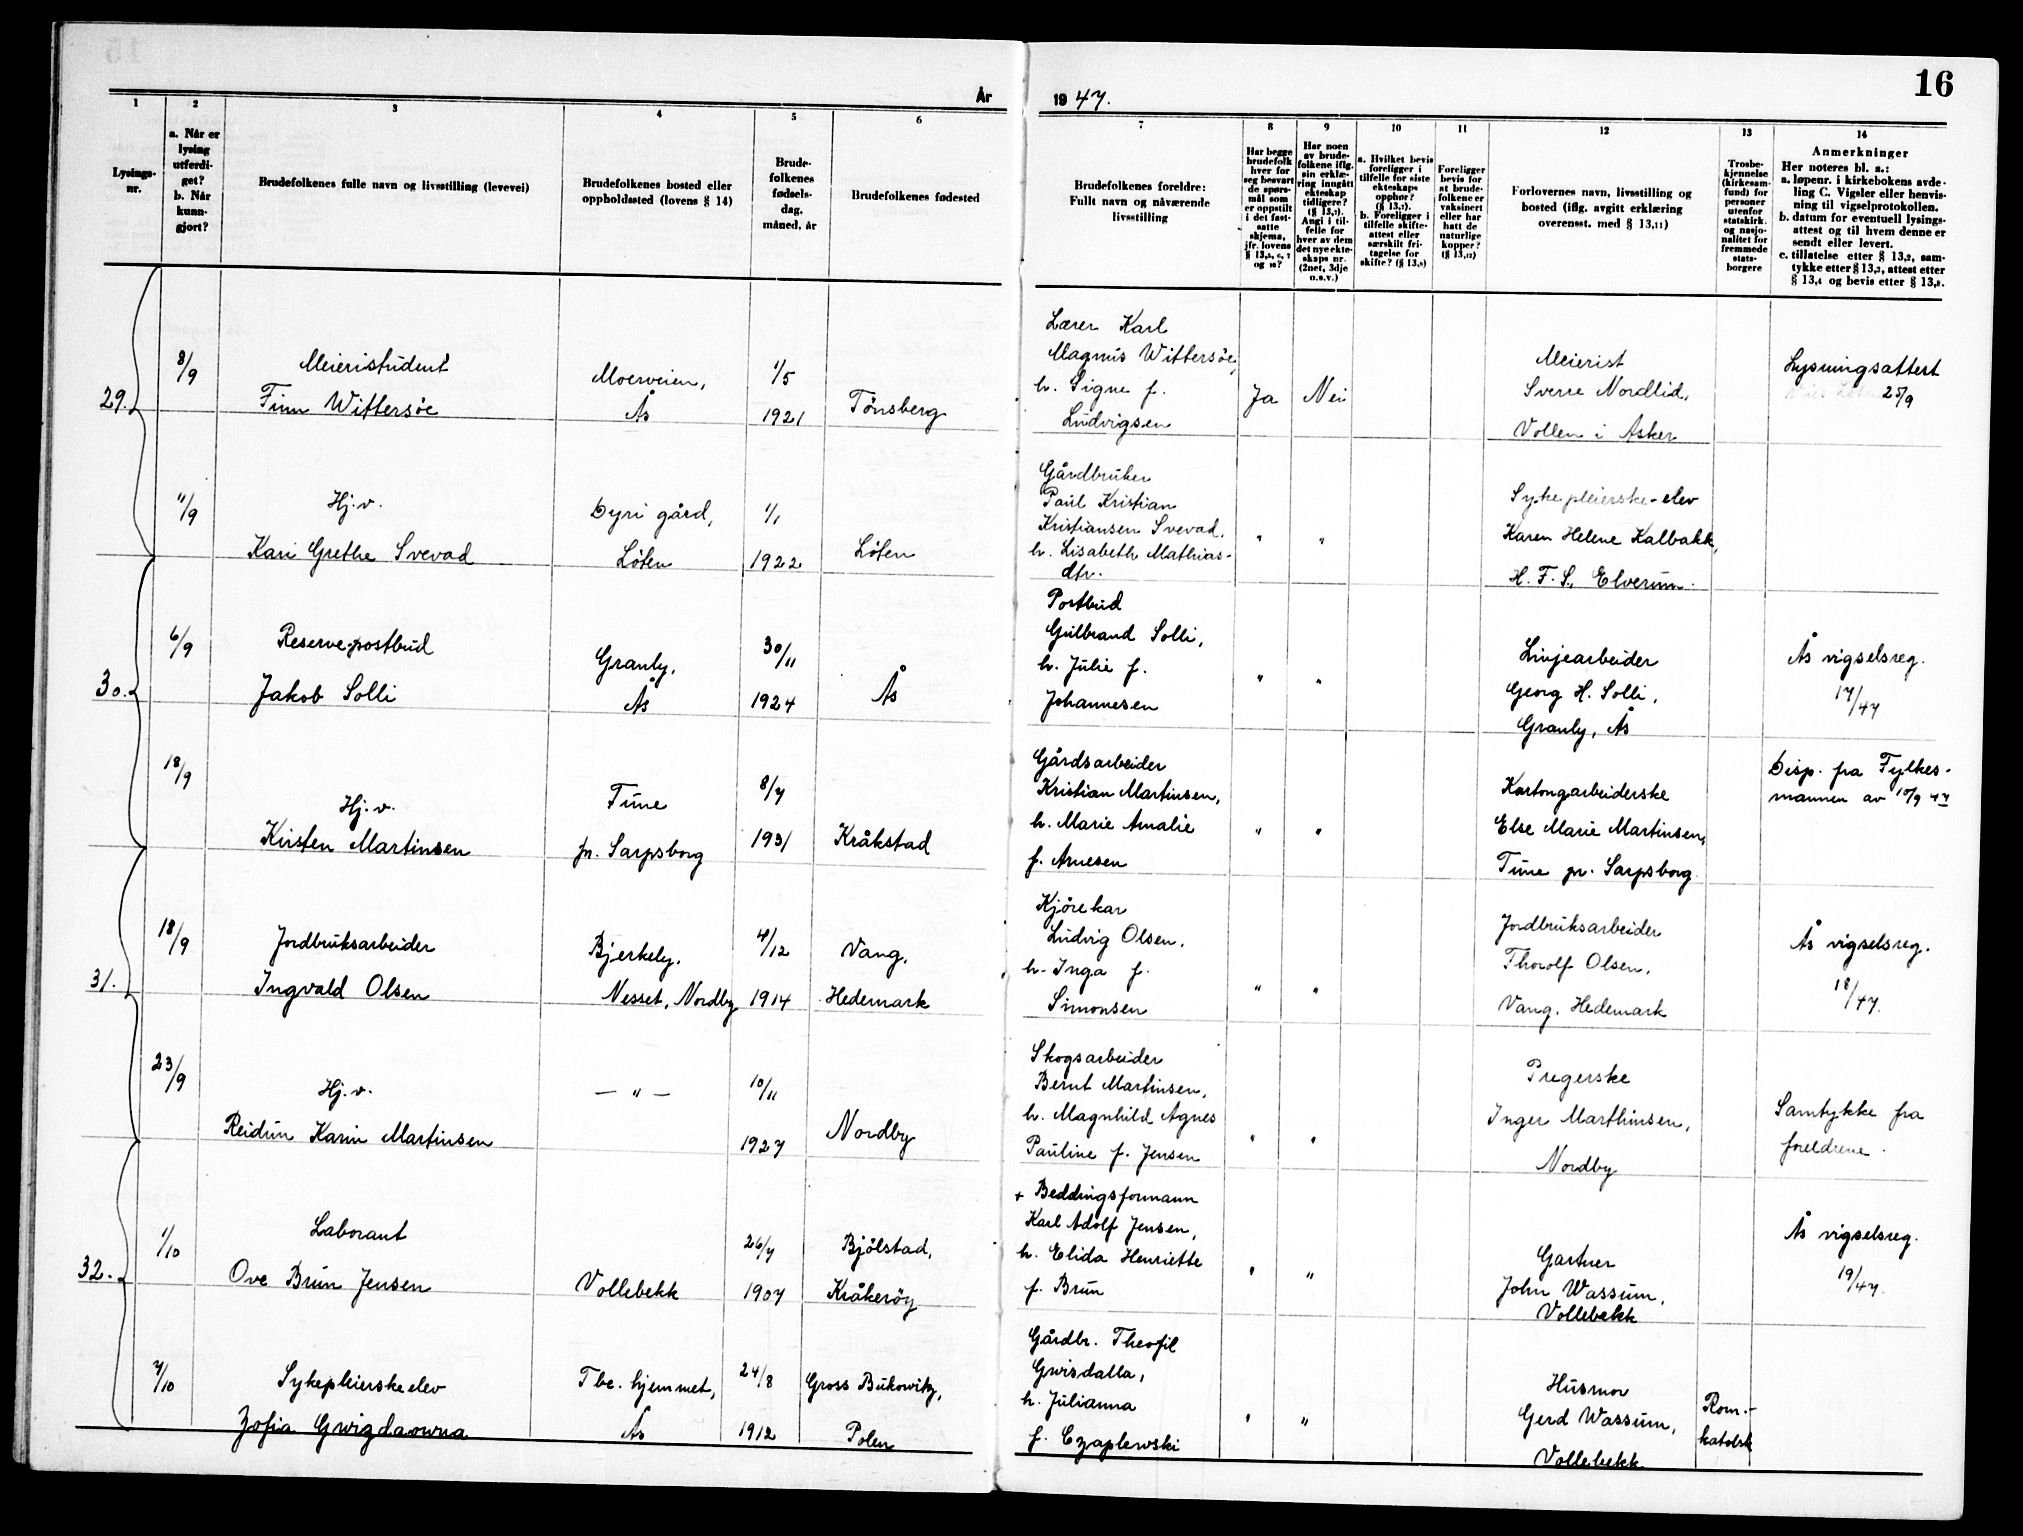 16
År 1947.
1
2
3
4
5
6
7
8
9
10
11
12
13
14
Lysings-
nr.
a. Når er
lysing
utferdi-
get?
b. Når
kunn-
gjort?
Brudefolkenes fulle navn og livsstilling (levevei)
Brudefolkenes bosted eller
oppholdssted (lovens § 14)
Brude-
folkenes
fødsels-
dag,
måned, år
Brudefolkenes fødested
Brudefolkenes foreldre:
Fullt navn og nåværende
livsstilling
Har begge
brudefolk
hver for
seg besvart
de spørs-
mål som
er oppstilt
i det fast-
satte
skjema,
jfr. lovens
Har noen
av brude-
folkene iflg.
sin erklæ-
ring inngått
ekteskap
tidligere?
(§ 13,1).
Angi i til-
felle for
hver av dem
det nye ekte-
skaps nr.
(2net, 3dje
o.s.v.)
a. Hvilket bevis
foreligger i
tilfelle for siste
ekteskaps
opphør?
(§ 13,7).
b. Foreligger i
tilfelle skifte-
attest eller
særskilt fri-
tagelse for
skifte? (§ 13,9)
Foreligger
bevis for
at brude-
folkene er
vaksinert
eller har
hatt de
naturlige
kopper?
(§ 13,12)
Forlovernes navn, livsstilling og
bosted (iflg. avgitt erklæring
overensst. med § 13,11)
Trosbe-
kjennelse
(kirkesam-
fund) for
personer
utenfor
statskirk.
og nasjo-
nalitet for
fremmede
stats-
borgere
Anmerkninger
Her noteres bl. a.:
a. løpenr. i kirkebokens avde-
ling C. Vigsler eller henvis-
ning til vigselprotokollen.
b. datum for eventuell lysings-
attest og til hvem denne er
sendt eller levert.
c. tillatelse etter § 13,2, sam-
tykke etter § 13,3, attest etter
§ 13,4 og bevis etter § 13,8.
29.
8/9
Meieristudent
Finn Wittersøe
Moerveien,
Ås
1/5
1921
Tønsberg
Lærer Karl
Magnus Wittersøe,
h. Signe f.
Ludvigsen
Ja
Nei
Meierist
Sverre Nordlid,
Vollen i Asker
Lysningsattest
25/9
11/9
Hj.v.
Kari Grethe Svevad
Dyri gård,
Løten
1/1
1922
Løten
Gårdbruker
Paul Kristian
Kristiansen Svevad,
h. Lisabeth Mathias-
dtr.
"
"
Sykepleierske-elev
Karen Helene Kalbakk,
H. F. S., Elverum.
30.
6/9
Reservepostbud
Jakob Solli
Granly,
Ås
30/11
1924
Ås
Postbud
Gulbrand Solli,
h. Julie f.
Johannesen
"
"
Linjearbeider
Georg H. Solli,
Granly, Ås
Ås vigselsreg.
17/47
18/9
Hj.v.
Kirsten Martinsen
Tune
pr. Sarpsborg
8/7
1931
Kråkstad
Gårdsarbeider
Kristian Martinsen,
h. Marie Amalie
f. Arnesen
"
"
Kartongarbeiderske
Else Marie Martinsen,
Tune pr. Sarpsborg.
Disp. fra Fylkes-
mannen av 10/9 47
31.
18/9
Jordbruksarbeider
Ingvald Olsen
Bjerkely,
Nesset, Nordby
4/12
1914
Vang,
Hedemark
Kjørekar
Ludvig Olsen,
h. Inga f.
Simonsen
"
"
Jordbruksarbeider
Thorolf Olsen,
Vang, Hedemark
Ås vigselsreg.
18/47.
23/9
Hj.v.
Reidun Karin Martinsen
— " —
10/11
1927
Nordby
Skogsarbeider
Bernt Martinsen,
h. Magnhild Agnes
Pauline f. Jensen
"
"
Pregerske
Inger Marthinsen,
Nordby
Samtykke fra
foreldrene.
32.
1/10
Laborant
Ove Brun Jensen
Vollebekk
26/7
1907
Bjølstad,
Kråkerøy
+ Beddingsformann
Karl Adolf Jensen,
h. Elida Henriette
f. Brun
"
"
Gartner
John Wassum,
Vollebekk
Ås vigselsreg.
19/47.
7/10
Sykepleierskeelev
Zofia Gwizdaowna
Tbc. hjemmet,
Ås
24/8
1912
Gross Bukowitz,
Polen
Gårdbr. Theofil
Gwisdalla,
h. Julianna
f. Czaplewski
"
"
Husmor
Gerd Wassum,
Vollebekk
Rom.-
katolsk